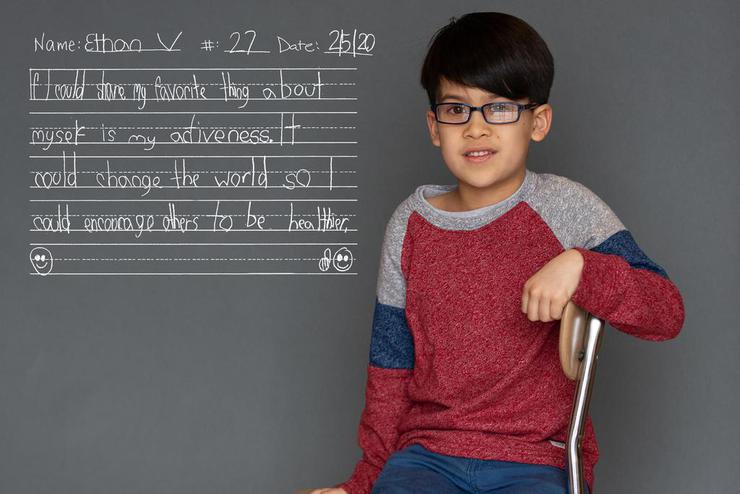 Name: Ethan V #: 27 Date: 2/5/20
If I could share my favorite thing about
myself is my activeness. It
could change the world so I
could encourage others to be healthier.